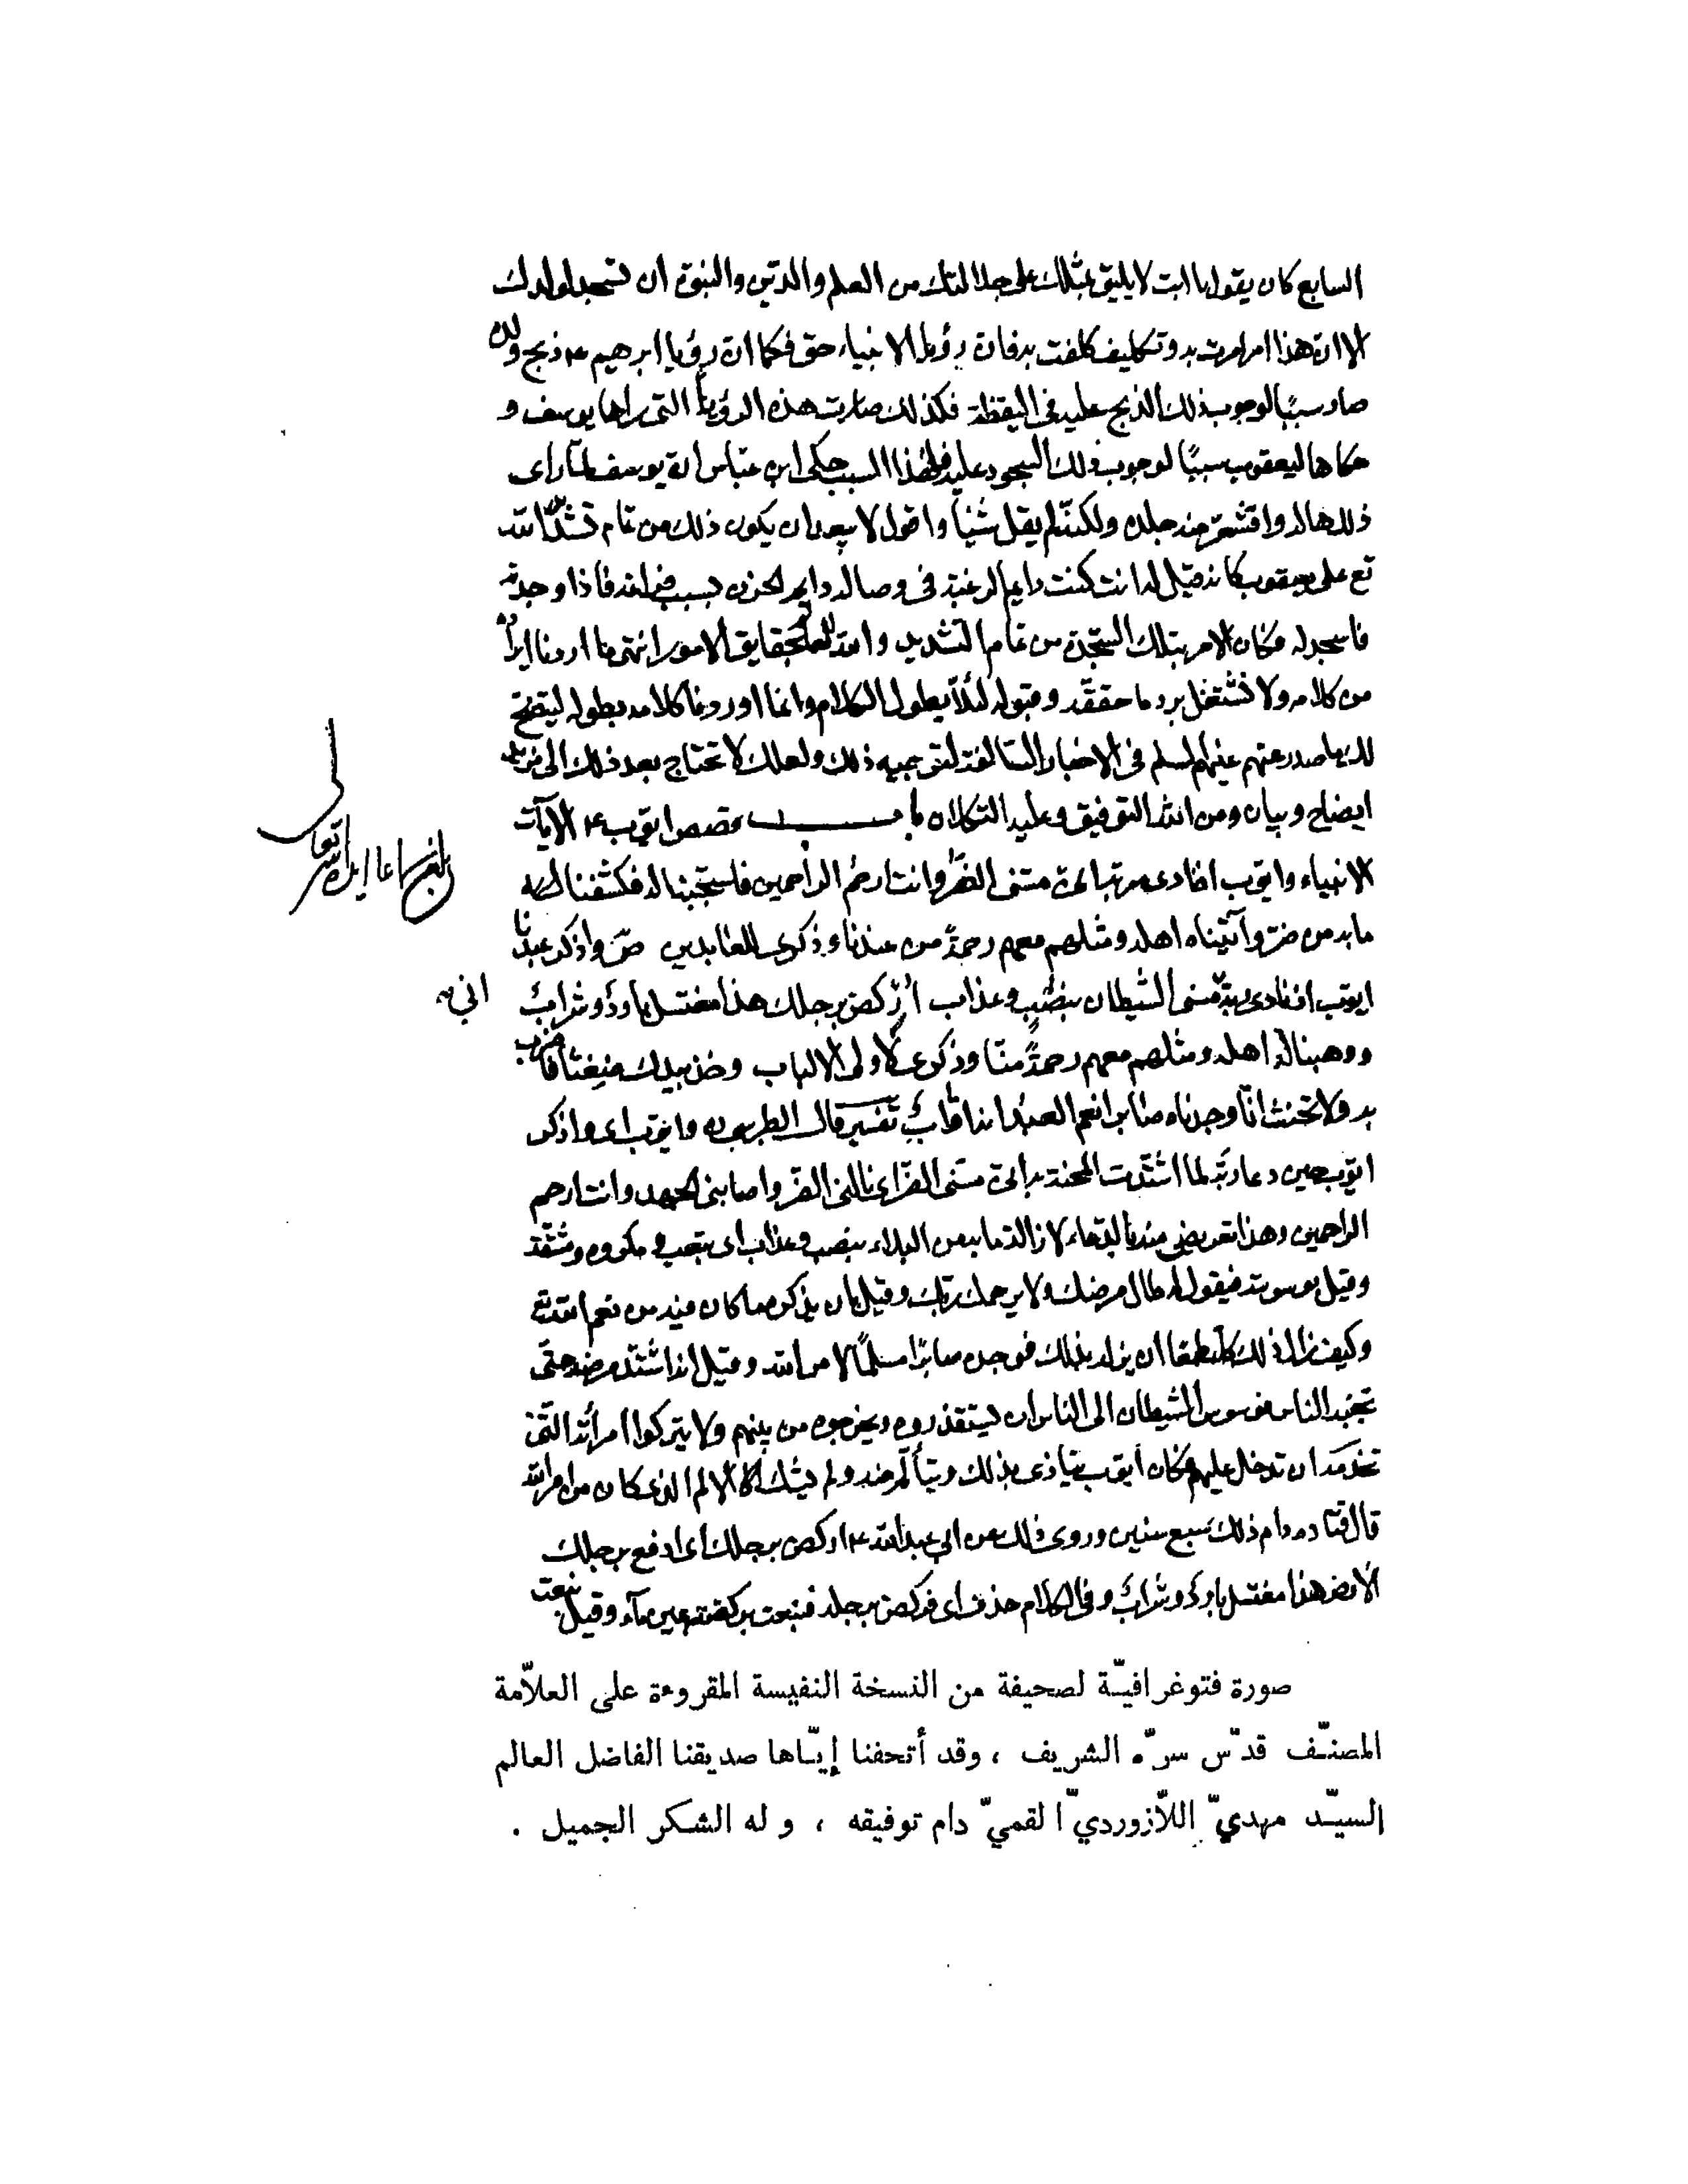 السابع كان يقول يا ابت لا يليق بمثلك على جلالتك من العلم والدين والنبوة ان تسجد لولدك
الا ان هذا امر امرت به وتكليف كلفت به فان رؤيا الانبياء حق فكما ان رؤيا ابرهيم ع ذبح ولده
صار سببا لوجوب ذلك الذبح عليه في اليقظة فكذلك صارت هذه الرؤيا التي راها يوسف و
حكاها ليعقوب سببًا لوجوب ذلك السجود عليه فلهذا السبب حكى ابن عباس ان يوسف لما راى
ذلك هاله واقشعر منه جلده ولكنه لم يقل شيئا واقول لا يبعد ان يكون ذلك من تمام تشديد الله
تع على يعقوب كانه قيل له انت كنت دايم الرغبة في وصاله دايم الحزن بسبب فراقه فاذا وجدته
فاسجد له فكان الامر بتلك السجدة من تمام التشديد والله العالم بحقايق الامور انتهى ما اردنا ايراده
من كلامه ولا نشتغل برد ما حققه وقبوله لئلا يطول الكلام وانما اوردنا كلامه بطوله ليتضح
لك ما صدر عنهم عليهم السلم في الاخبار السالفة لتوجيه ذلك ولعلك لا تحتاج بعد ذلك الى مزيد
ايضاح وبيان ومن الله التوفيق وعليه التكلان باب قصص ايوب ع الايات
الانبياء وايوب اذ نادى ربه انى مسنى الضر وانت ارحم الراحمين فاستجبنا له فكشفنا
ما به من ضر وآتيناه اهله ومثلهم معهم رحمةً من عندنا وذكرى للعابدين ص واذكر عبدنا
ايوب اذ نادى ربه مسنى الشيطان بنصب وعذاب اركض برجلك هذا مغتسل بارد وشراب
انى
ووهبنا له اهله ومثلهم معهم رحمةً منّا وذكرى لاولى الالباب وخذ بيدك ضغثا فاضرب
به ولا تحنث انا وجدناه صابرا نعم العبد انه اواب تفسير قال الطبرسى ره وايوب اى واذكر
ايوب حين دعا ربه لما اشتدت المحنة به انى مسنى الضر اى نالنى الضر واصابنى الجهد وانت ارحم
الراحمين وهذا تعريض منه بالدعاء لازالة ما به من البلاء بنصب وعذاب اى بتعب و مكروه ومشقة
وقيل بوسوسته فيقول له طال مرضك ولا يرحمك ربك وقيل بان يذكره ما كان فيه من نعم الله تع
وكيف زال ذلك كله طمعا ان يزله بذلك فوجده صابرا مسلمًا لامر الله وقيل انه اشتد مرضه حتى
تجنبه الناس فوسوس الشيطان الى الناس ان يستقذروه ويخرجوه من بينهم ولا يتركوا امرأته التى
تخدمه ان تدخل عليهم فكان ايوب يتاذى بذلك ويتألم منه ولم يشك الالم الذى كان من امر الله
قال قتاده دام ذلك سبع سنين وروى ذلك عن ابى عبد الله ع اركض برجلك اى ادفع برجلك
الارض هذا مغتسل بارد وشراب وفى الكلام حذف اى فركض برجله فنبعت بركضته عين ماء وقيل نبعت
صورة فتوغرافيّة لصحيفة من النسخة النفيسة المقروءة على العلاّمة
المصنّف قدّس سرّه الشريف ، وقد أتحفنا إيّاها صديقنا الفاضل العالم
السيّد مهديّ اللاّزورديّ القميّ دام توفيقه ، و له الشكر الجميل .